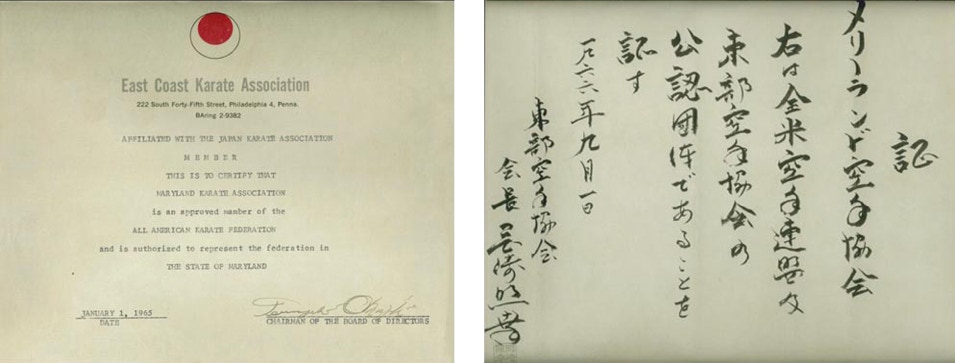 East Coast Karate Association
222 South Forty-Fifth Street, Philadelphia 4, Penna.
BAring 2-9382
AFFILIATED WITH THE JAPAN KARATE ASSOCIATION
MEMBER
THIS IS TO CERTIFY THAT
MARYLAND KARATE ASSOCIATION
is an approved member of the
ALL AMERICAN KARATE FEDERATION
and is authorized to represent the federation in
THE STATE OF MARYLAND
JANUARY 1, 1965
DATE
CHAIRMAN OF THE BOARD OF DIRECTORS
証
メリーランド空手協会
右は全米空手連盟及
東部空手協会の
公認団体であることを
証す
一九六六年九月一日
東部空手協会
会長